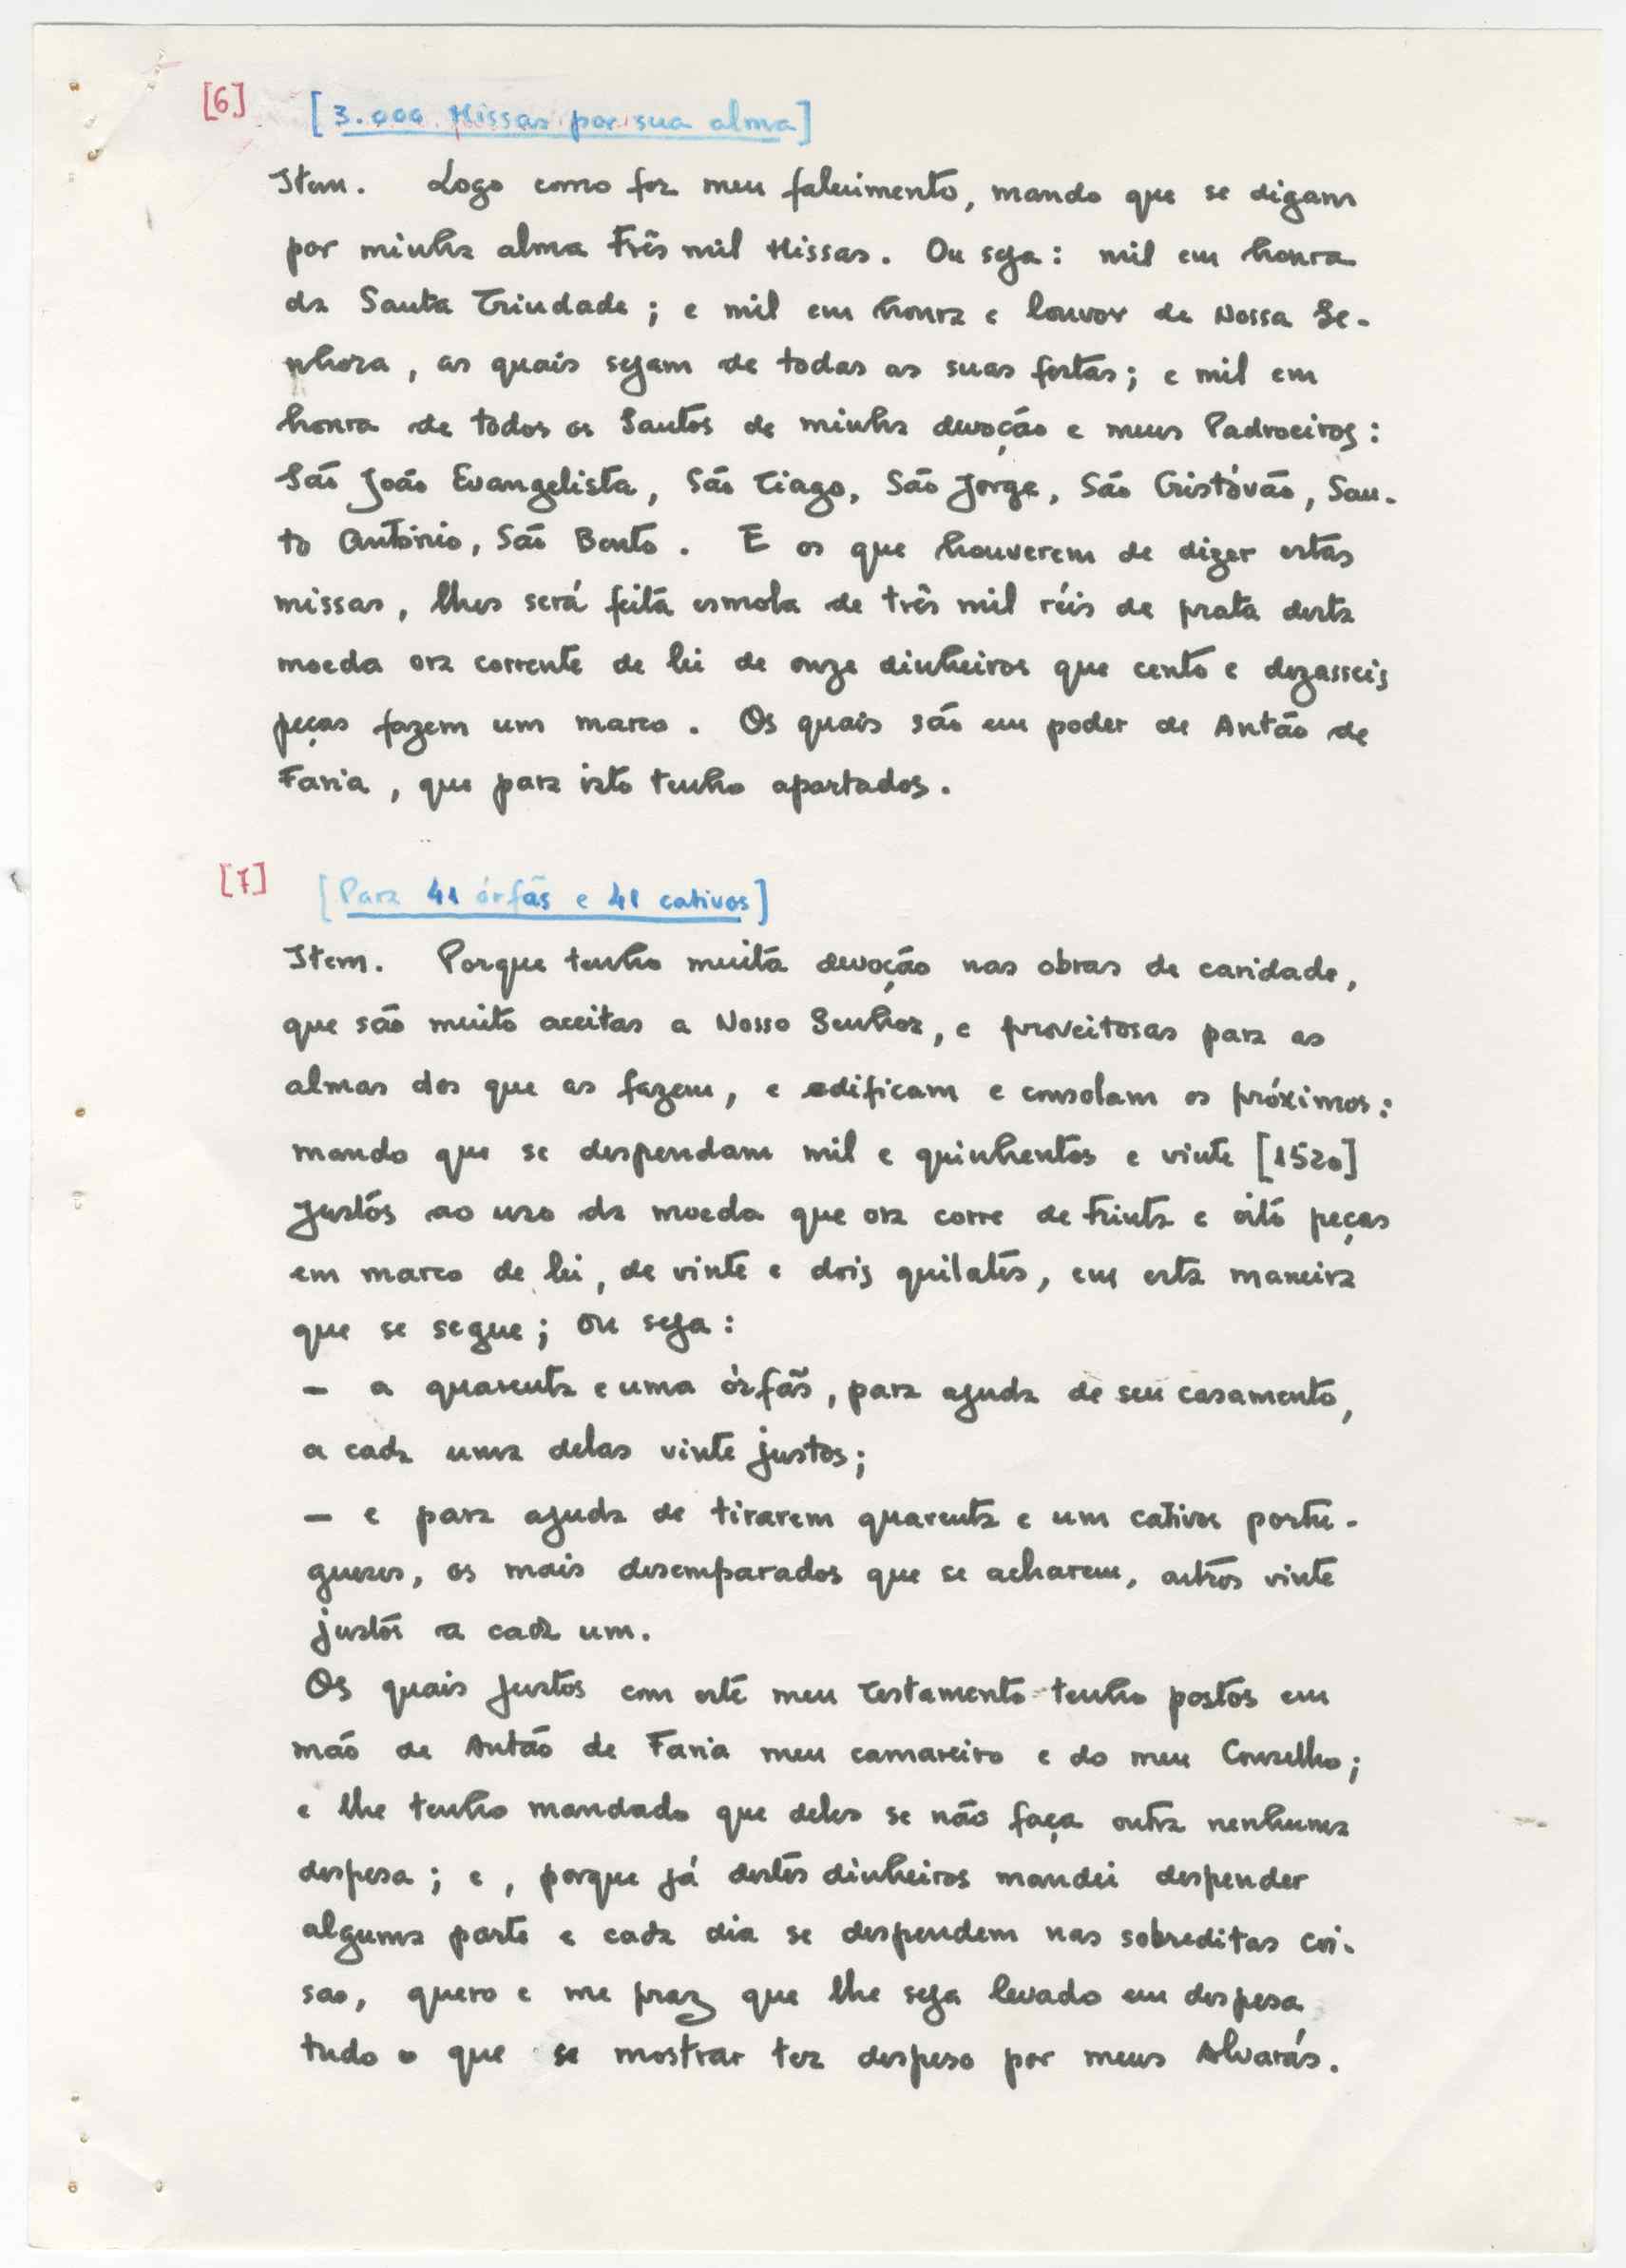 [6] [3.000 Missas por sua alma]
Item. Logo como for meu falecimento, mando que se digam
por minha alma Três mil Missas. Ou seja: mil em honra
da Santa Trindade; e mil em honra e louvor de Nossa Se-
nhora, as quais sejam de todas as suas festas; e mil em
honra de todos os Santos de minha devoção e meus Padroeiros:
São João Evangelista, São Tiago, São Jorge, São Cristóvão, San-
to António, São Bento. E os que houverem de dizer estas
missas, lhes será feita esmola de três mil réis de prata desta
moeda ora corrente de lei de onze dinheiros que cento e dezasseis
peças fazem um marco. Os quais são em poder de Antão de
Faria, que para isto tenho apartados.
[7] [Para 41 órfãs e 41 cativos]
Item. Porque tenho muita devoção nas obras de caridade,
que são muito aceitas a Nosso Senhor, e proveitosas para as
almas dos que as fazem, e edificam e consolam os próximos:
mando que se despendam mil e quinhentos e vinte [1520]
Justos ao uso da moeda que ora corre de trinta e oito peças
em marco de lei, de vinte e dois quilates, em esta maneira
que se segue; ou seja:
- a quarenta e uma órfãs, para ajuda de seu casamento,
a cada uma delas vinte justos;
- e para ajuda de tirarem quarenta e um cativos portu-
gueses, os mais desemparados que se acharem, outros vinte
justos a cada um.
Os quais Justos com este meu Testamento tenho postos em
mão de Antão de Faria meu camareiro e do meu Conselho;
e lhe tenho mandado que deles se não faça outra nenhuma
despesa; e, porque já destes dinheiros mandei despender
alguma parte e cada dia se despendem nas sobreditas coi-
sas, quero e me praz que lhe seja levado em despesa
tudo o que se mostrar ter despeso por meus Alvarás.